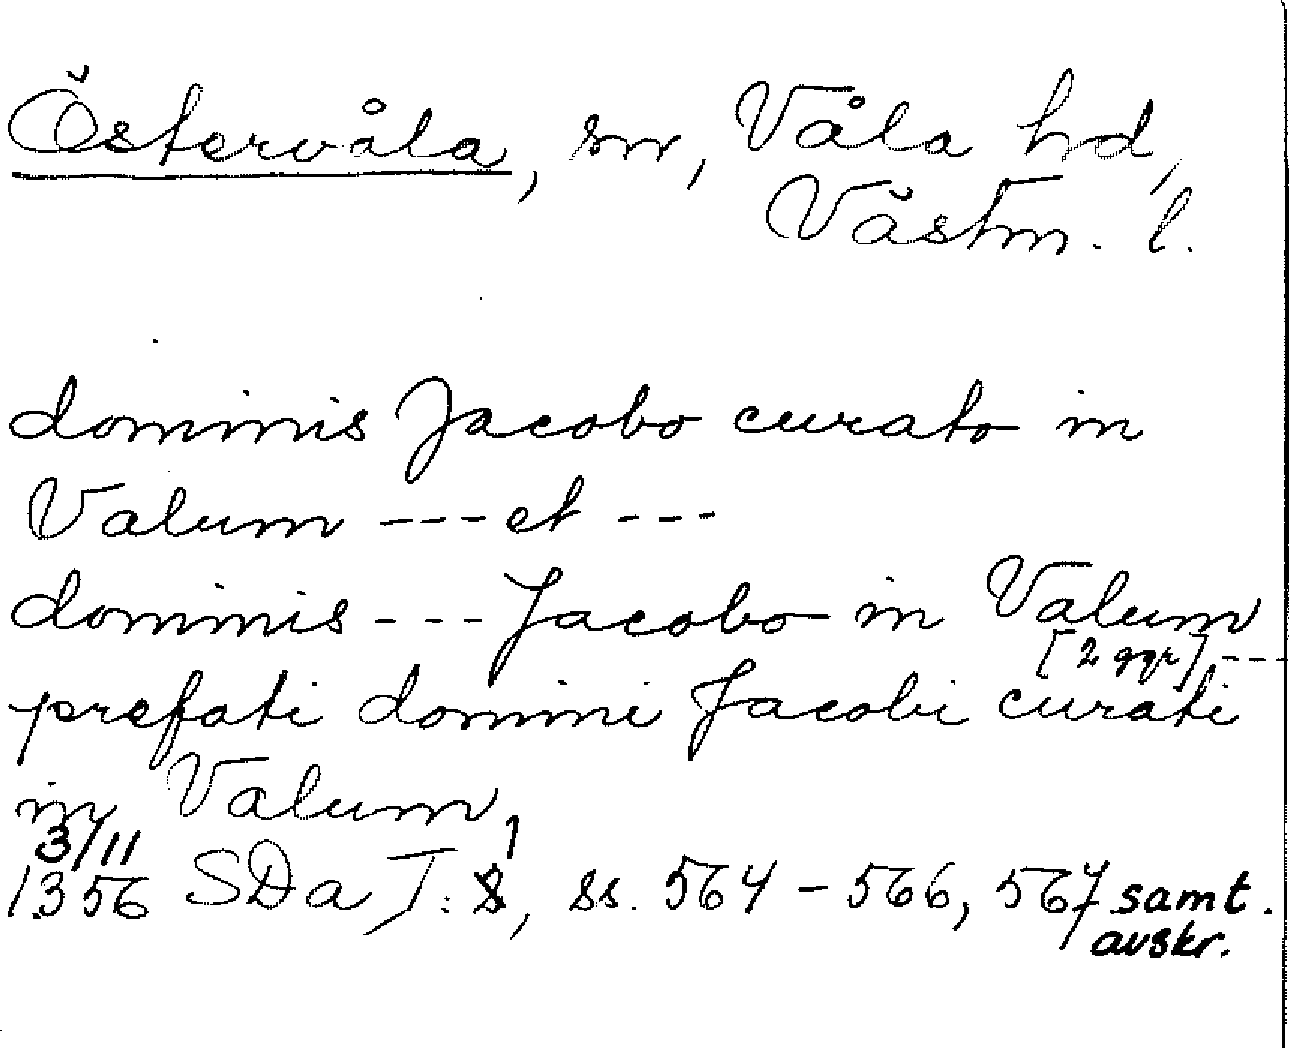 Östervåla, sn, Våla hd,
Västm. l.
dominis Jacobo curato in
Valum --- et ---
dominis --- Jacobo in Valum
[2 ggr] ---
prefati domini Jacobi curati
in Valum,
3/11 1
1356 SDa I: 8, ss. 564 - 566, 567 samt.
avskr.